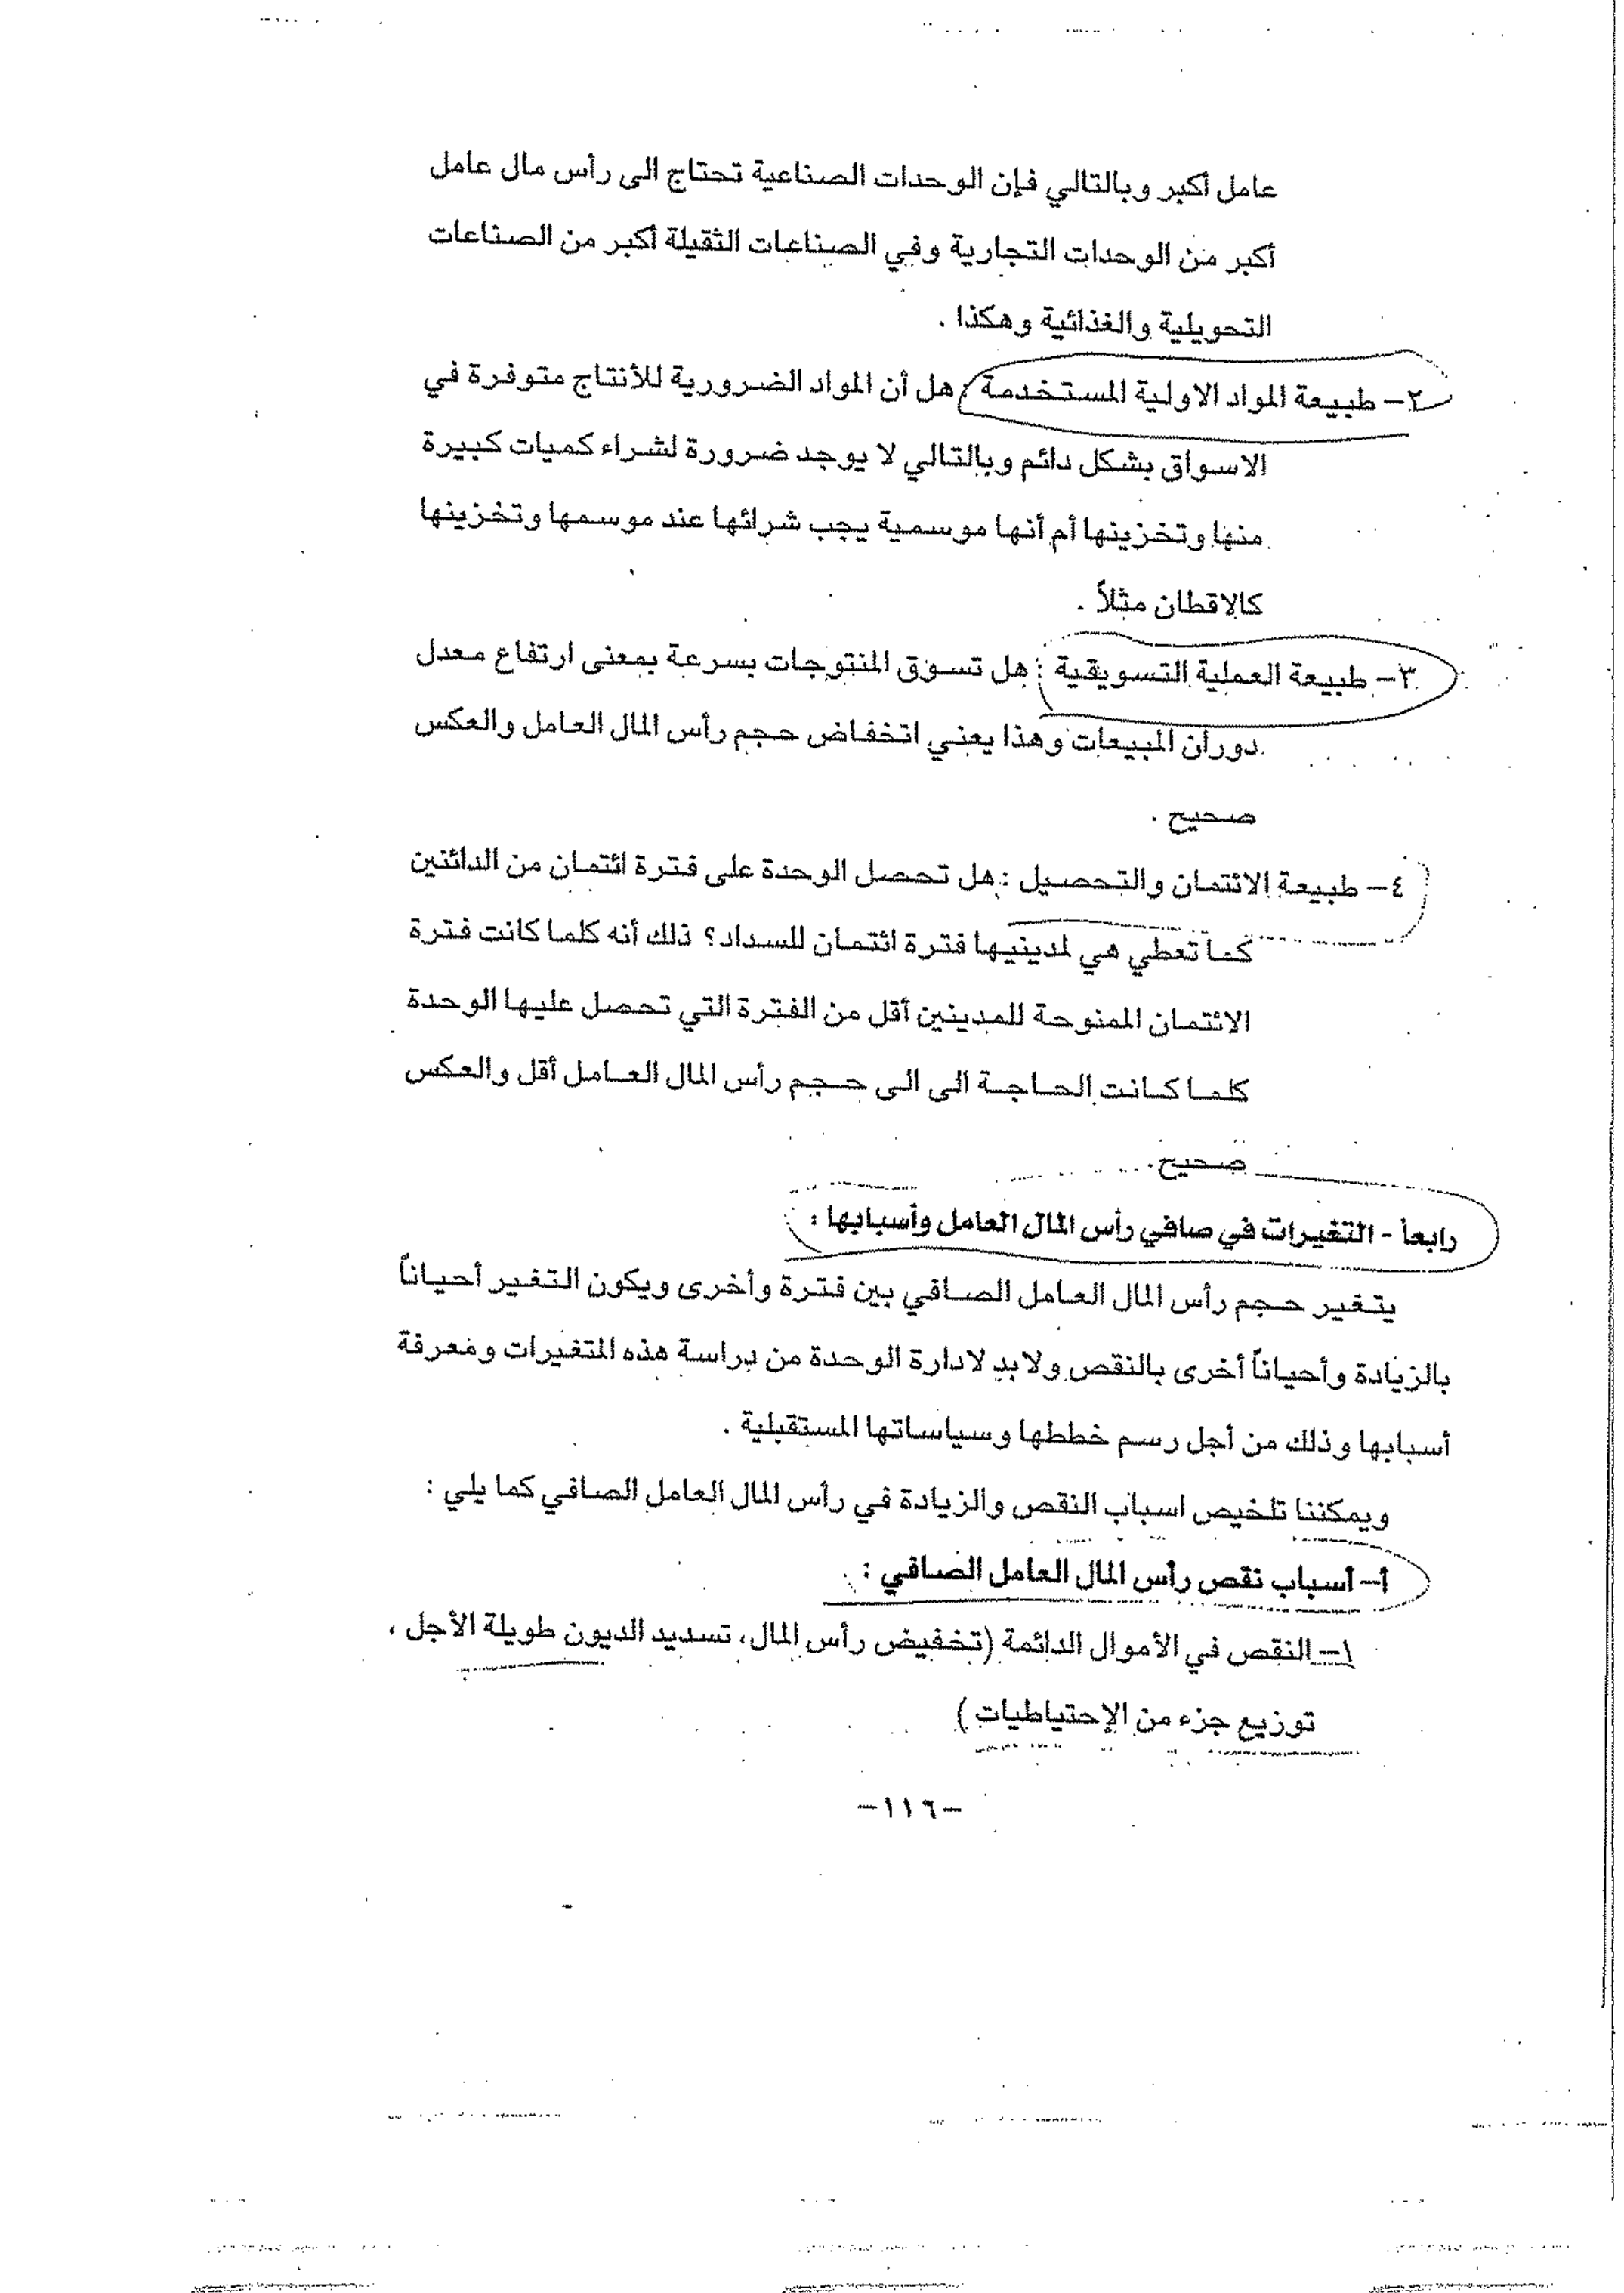 عامل أكبر وبالتالي فإن الوحدات الصناعية تحتاج الى رأس مال عامل
أكبر من الوحدات التجارية وفي الصناعات الثقيلة أكبر من الصناعات
التحويلية والغذائية وهكذا .
٢- طبيعة المواد الاولية المستخدمة : هل أن المواد الضرورية للأنتاج متوفرة في
الاسواق بشكل دائم وبالتالي لا يوجد ضرورة لشراء كميات كبيرة
منها وتخزينها أم أنها موسمية يجب شرائها عند موسمها وتخزينها
كالاقطان مثلاً .
٣- طبيعة العملية التسويقية : هل تسوق المنتوجات بسرعة بمعنى ارتفاع معدل
دوران المبيعات وهذا يعني انخفاض حجم رأس المال العامل والعكس
صحيح .
٤- طبيعة الائتمان والتحصيل : هل تحصل الوحدة على فترة ائتمان من الدائنين
كما تعطي هي لمدينيها فترة ائتمان للسداد؟ ذلك أنه كلما كانت فترة
الائتمان الممنوحة للمدينين أقل من الفترة التي تحصل عليها الوحدة
كلما كانت الحاجة الى الى حجم رأس المال العامل أقل والعكس
صحيح.
رابعاً - التغيرات في صافي رأس المال العامل وأسبابها :
يتغير حجم رأس المال العامل الصافي بين فترة وأخرى ويكون التغير أحياناً
بالزيادة وأحياناً أخرى بالنقص ولابد لادارة الوحدة من دراسة هذه المتغيرات ومعرفة
أسبابها وذلك من أجل رسم خططها وسياساتها المستقبلية .
ويمكننا تلخيص اسباب النقص والزيادة في رأس المال العامل الصافي كما يلي :
أ- أسباب نقص رأس المال العامل الصافي :
١- النقص في الأموال الدائمة (تخفيض رأس المال، تسديد الديون طويلة الأجل ،
توزيع جزء من الإحتياطيات )
-١١٦-